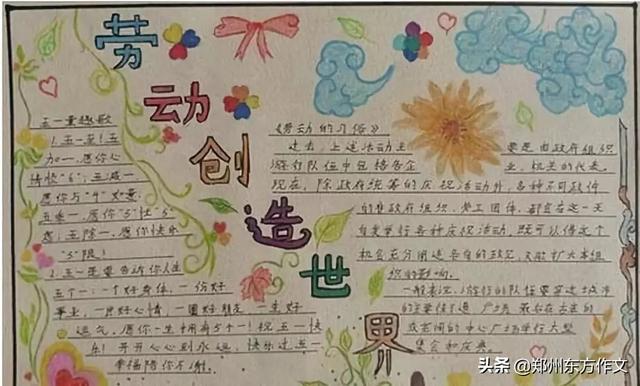 劳动创造世界
五一童趣歌
1.五一至!五
加一,愿你心
情快“6”;五减一
愿你与“4”如意
五乘一,愿你“5”忙“5”
虑;五除一,愿你快乐
“5”限!
2.五一是要告诉你人生
五个一:一个好身体,一份好
事业,一片好心情,一圈好朋友,一生好
运气,愿你一生拥有5个一!祝五一快
乐!开开心心到永远,快乐过五一
幸福陪你不谢。
《劳动的习俗》
过去,上述活动主要是由政府组织
游行队伍中包括各企业,机关的代表。
现在,除政府统筹的庆祝活动外,各种不同政件
的非政府组织、劳工团体,都会在这一天
自发举行各种庆祝活动,既可以借这个
机会充分阐述各自的政见,又能扩大本组
织的影响。
一般来说,游行的队伍要穿过城市
的主要街道、广场,最后在古老的
或空阔的中心广场举行大型
集会和庆典。
头条 @郑州东方作文